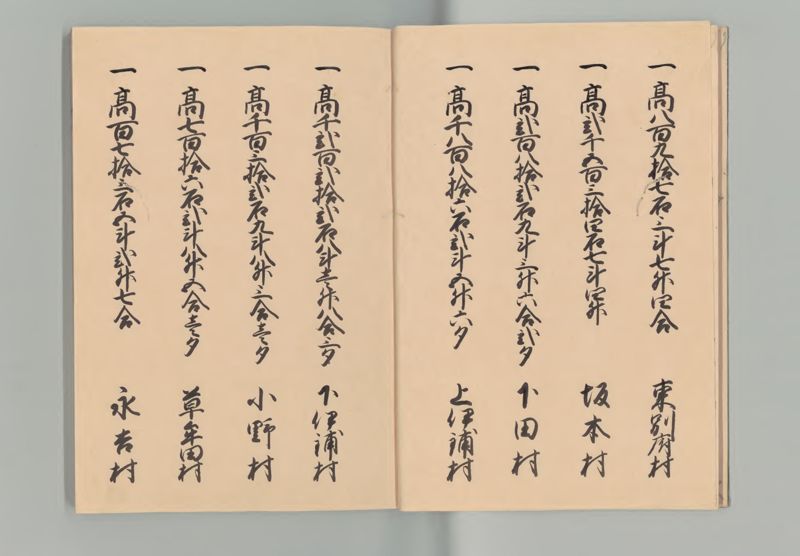 一高八百九拾七石三斗七升四合 東別府村
一高弐千五百三拾四石七斗四升 坂本村
一高弐百八拾弐石九斗三升六合弐夕 下田村
一高千八百八拾六石弐斗五升六夕 上伊敷村
一高千弐百弐拾弐石八斗壱升八合三夕 下伊敷村
一高千百三拾弐石九斗八升三合壱夕 小野村
一高七百拾六石弐斗八升五合壱夕 草牟田村
一高百七拾三石五斗弐升七合 永吉村